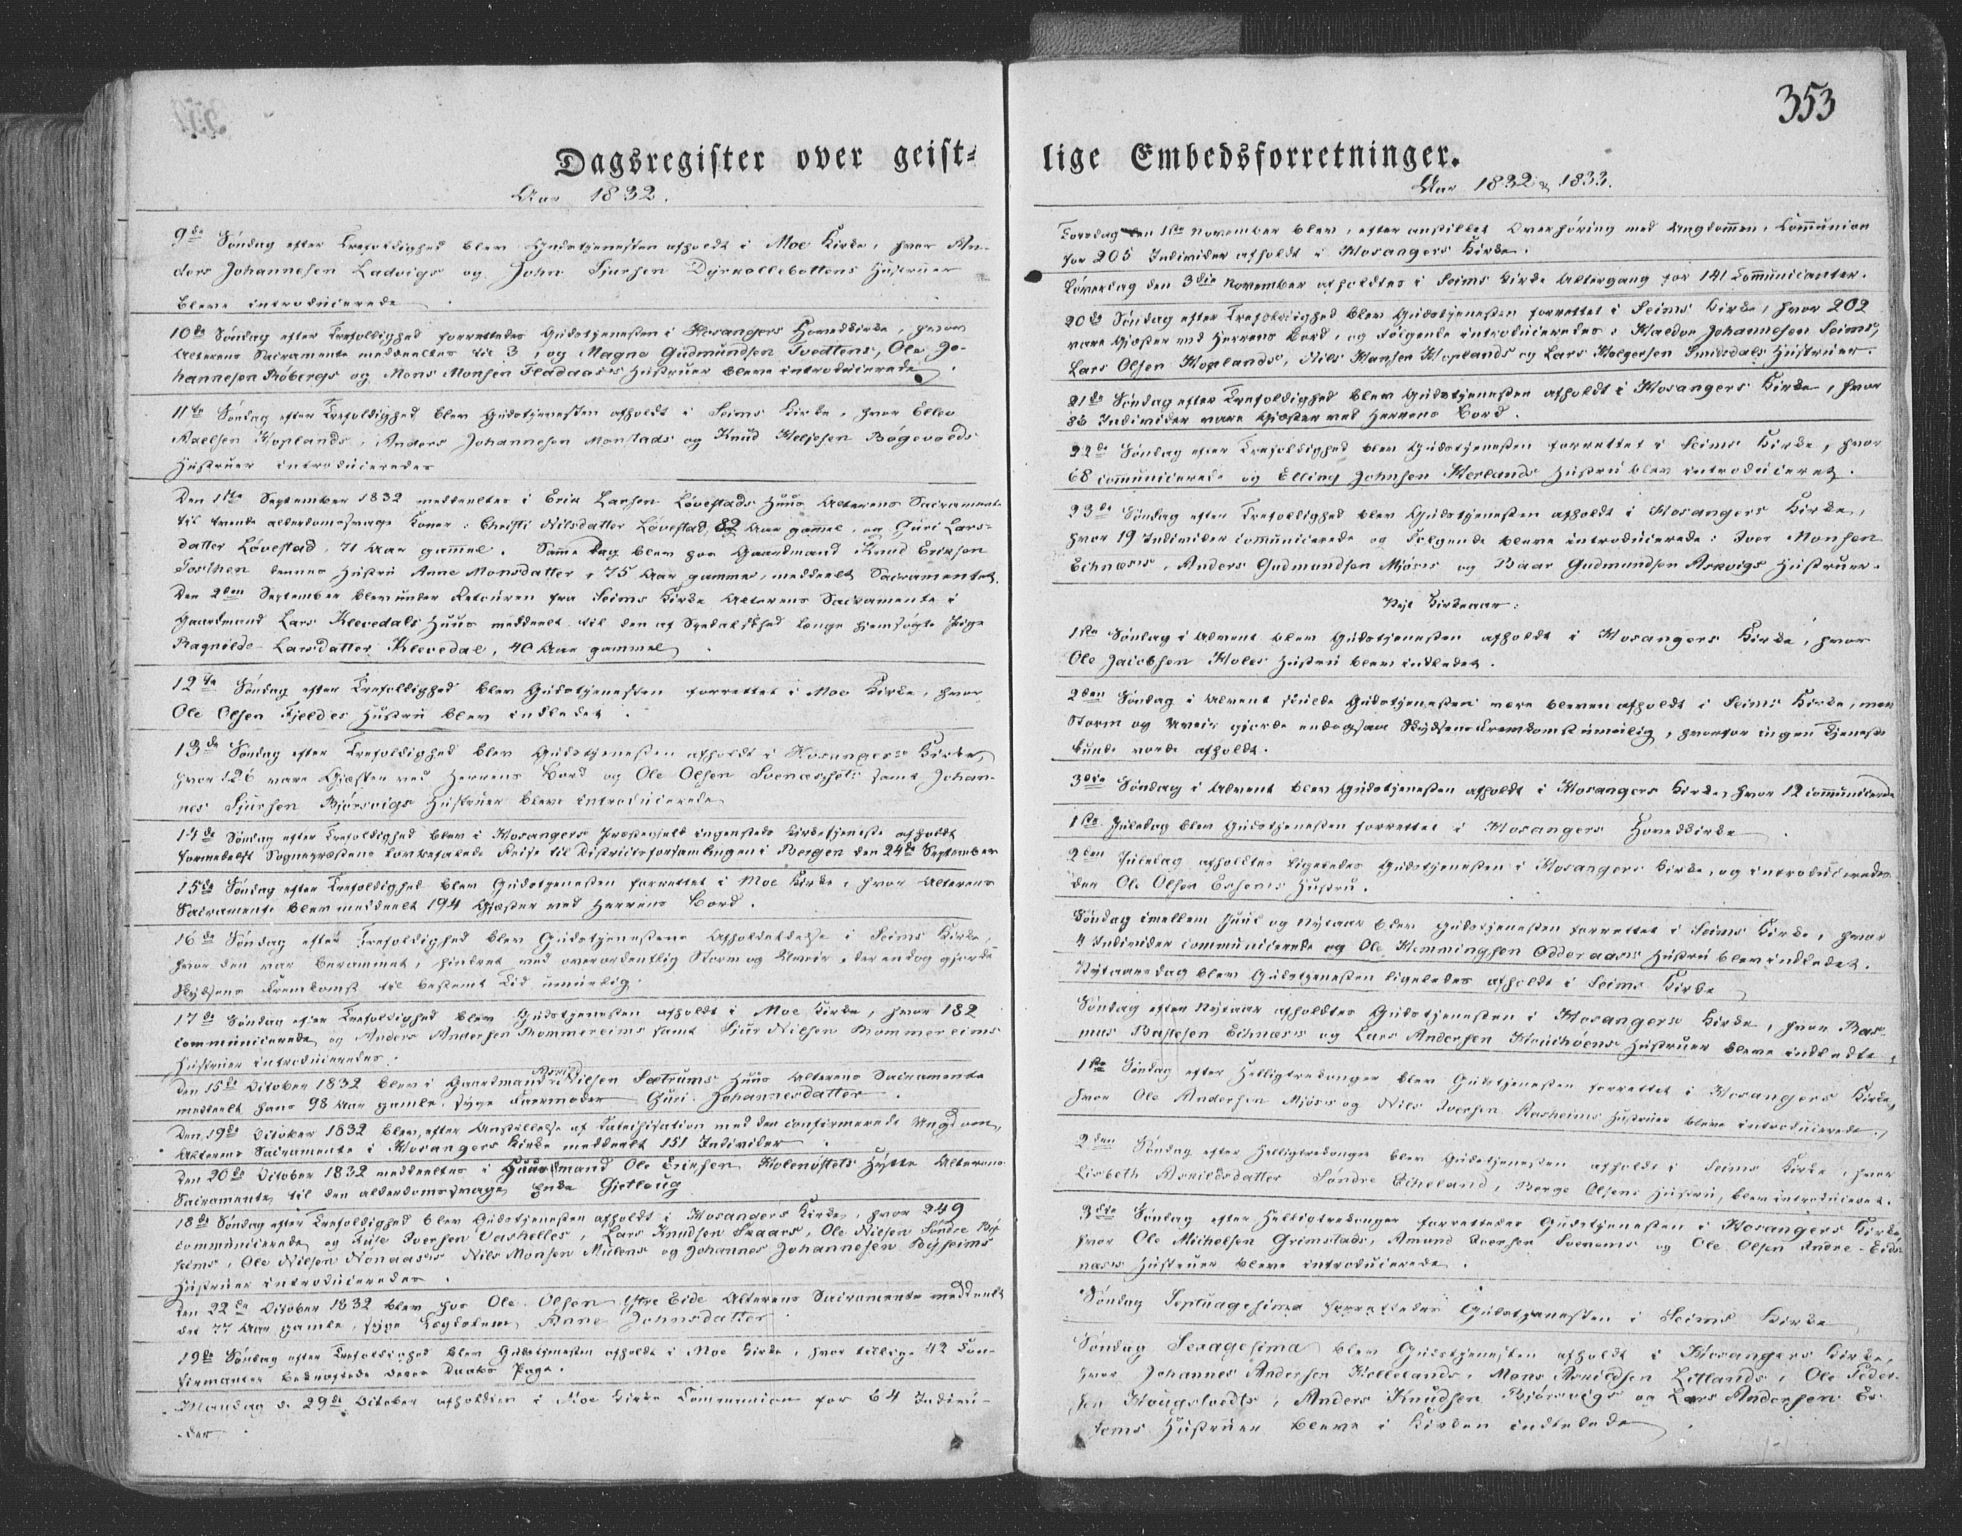 353
Dagsregister over geist=
Aar 1832.
9de Søndag efter Trefoldighed blev Gudstjenesten afholdt i Moe Kirke, hvor An-
ders Johannesen Ladvigs og John Sjursen Dyrkollebottens Hustruer
bleve introducerede.
10de Søndag efter Trefoldighed forrettedes Gudstjenesten i Hosangers Hovedkirke, hvor
Alterens Sacramente meddeeltes til 3, og Magne Gudmundsen Tvedtens, Ole Jo-
hannesen Røbergs og Mons Monsen Fladaas's Hustruer bleve introducerede.
11te Søndag efter Trefoldighed blev Gudstjenesten afholdt i Seims Kirke, hvor Ellev
Hoplands, Anders Johannesen Monstads og Knud Heljesen Bøgevolds
Hustruer introduceredes
Den 1ste September 1832 meddeeltes i Erik Larsen Løvestads Huus Alterens Sacramente
til trende alderdomssvage Koner: Christi Nilsdatter Løvestad, 82 Aar gammel, og Guri Lars-
datter Løvestad, 71 Aar gammel. Samme Dag blev hos Gaardmand Knud Eriksen
dennes Hustru Anne Monsdatter, 75 Aar gammel, meddeelt Sacramentet.
Den 2den September blev under Retouren fra Seims Kirke Alterens Sacramente i
Gaardmand Lars Klevedals Huus meddeelt til den af Svedalskhed længe hjemsøgte Pige
Ragnilde Larsdatter Klevedal, 40 Aar gammel.
12te Søndag efter Trefoldighed blev Gudstjenesten forrettet i Moe Kirke, hvor
Ole Olsen Fjeldes Hustru blev indledet.
13de Søndag efter Trefoldighed blev Gudstjenesten afholdt i Hosangers Kirke,
hvor 126 vare Gjæster ved Herrens Bord og Ole Olsen samt Johan-
nes Sjursen Bjørsvigs Hustruer bleve introducerede
14de Søndag efter Trefoldighed blev i Hosangers Præstegjeld ingensteds Kirketjeneste afholdt
formedelst Sognepræstens lovbefalede Reise til Districtsforsamlingen i Bergen den 24de September
15de Søndag efter Trefoldighed blev Gudstjenesten forrettet i Moe Kirke, hvor Alterens
Sacramente blev meddeelt 194 Gjæster ved Herrens Bord.
16de Søndag efter Trefoldighed blev Gudstjenestens Afholdeldelse i Seims Kirke,
hvor den var berammet, hindret ved overordentlig Storm og Uveir, der endog gjorde
Skydsens Fremkomst til bestemt Tid umuelig.
17de Søndag efter Trefoldighed blev Gudstjenesten afholdt i Moe Kirke, hvor 182
communicerede og Anders Andersen Rommereims samt Sjur Nilsen Rommereims
Hustruer introduceredes.
Den 15de October 1832 blev i Gaardmand Nilsen Sætrums Huus Alterens Sacramente
meddeelt hans 98 Aar gamle, syge Faermoder Guri Johannesdatter.
Den 19de October 1832 blev, efter Anstillelse af Catechisation med den confirmerede Ungdom,
Alterens Sacramente i Hosangers Kirke meddeelt 151 Individer.
Den 20de October 1832 meddeeltes i Huusmand Ole Eriksen Holenøstets Hytte Alterens
Sacramente til den alderdomssvage Enke Gjetloug
18de Søndag efter Trefoldighed blev Gudstjenesten afholdt i Hosangers Kirke, hvor 249
communicerede og Iver Iversen Vashelles, Lars Knudsen Skaars, Ole Nilsen Søndre By-
seims, Ole Nilsen Nonaas's Nils Monsen Mulens og Johannes Johannesen Byseims
Hustruer introduceredes.
Den 22de October 1832 blev hos Ole Olsen Ystre Eide Alterens Sacramente meddeelt
det 77 Aar gamle, syge Anne Johnsdatter
19de Søndag efter Trefoldighed blev Gudstjenesten afholdt i Moe Kirke, hvor tillige 42 Con-
firmanter bekræftede deres Daabs Pagt.
Mandag d. 29de October afholdtes i Moe Kirke Communion for 64 Indivi-
der.
lige Embedsforretninger.
Aar 1832 & 1833.
Torsdag den 1ste November blev, efter anstillet Overhøring med Ungdommen, Communion
for 205 Individer afholdt i Hosangers Kirke.
Løverdag den 3die November afholdtes i Seims Kirke Altergang for 141 Communicanter.
20de Søndag efter Trefoldighed blev Gudstjenesten forrettet i Seims Kirke, hvor 202
vare Gjæster ved Herrens Bord, og følgende introduceredes: Haldor Johannesen Seims,
Lars Olsen Hoplands, Nils Hansen Hoplands og Lars Holgersen Smedsdals Hustruer.
21de Søndag efter Trefoldighed blev Gudstjenesten afholdt i Hosangers Kirke, hvor
86 Individer vare Gjæster ved Herrens Bord.
22de Søndag efter Trefoldighed blev Gudstjenesten forrettet i Seims Kirke, hvor
68 communicerede og Elling Johnsen Herlands Hustru blev introduceret.
23de Søndag efter Trefoldighed blev Gudstjenesten afholdt i Hosangers Kirke,
hvor 19 Individer communicerede og Følgende bleve introducerede: Iver Monsen
Echnæs's, Anders Gudmundsen Mjøs's og Baar Gudmundsen Askvigs Hustruer.
Nyt Kirkeaar:
1ste Søndag i Advent blev Gudstjenesten afholdt i Hosangers Kirke, hvor
Ole Jacobsen Holes Hustru blev indledet.
2den Søndag i Advent skulde Gudstjenesten være bleven afholdt i Seims Kirke, men
Storm og Uveir gjorde endogsaa Skydsens Fremkomst umulig, hvorfor ingen Tjeneste
kunde vorde afholdt.
3die Søndag i Advent blev Gudstjenesten afholdt i Hosangers Kirke, hvor 12 communicerede
1ste Juledag blev Gudstjenesten forrettet i Hosangers Hovedkirke
2den Juledag afholdtes ligeledes Gudstjenesten i Hosangers Kirke, og introduceredes
der Ole Olsen Eshems Hustru.
Søndag imellem Juul og Nytaar blev Gudstjenesten forrettet i Seims Kirke, hvor
4 Individer communicerede og Ole Hemmingsen Odderaas's Hustru blev indledet.
Nytaarsdag blev Gudstjenesten ligeledes afholdt i Seims Kirke
Søndag efter Nytaar afholdtes Gudstjenesten i Hosangers Kirke, hvor Ras-
mus Bastesen Echnæs's og Lars Andersen Hustruer bleve indledte.
1ste Søndag efter Helligtrekonger blev Gudstjenesten forrettet i Hosangers Kirke,
hvor Ole Andersen Mjøs's og Nils Iversen Aasheims Hustruer bleve introducerede.
2den Søndag efter Helligtrekonger blev Gudstjenesten afholdt i Seims Kirke, hvor
Lisbeth Arnildsdatter Søndre Echeland, Børge Olsens Hustru, blev introduceret.
3die Søndag efter Helligtrekonger forrettedes Gudstjenesten i Hosangers Kirke,
hvor Ole Michelsen Grimstads, Amund Iversen og Ole Olsen Indre-Eids-
næs's Hustruer bleve introducerede.
Søndag Septuagesima forrettedes Gudstjenesten i Seims Kirke
Søndag Sexagesima blev Gudstjenesten afholdt i Hosangers Kirke,
hvor Johannes Andersen Hellelands, Mons Arnildsen Litlands, Ole Peder-
sen Hougstvedts, Anders Knudsen Bjørsvigs og Lars Andersen Es-
Hustruer bleve i Kirken indledede